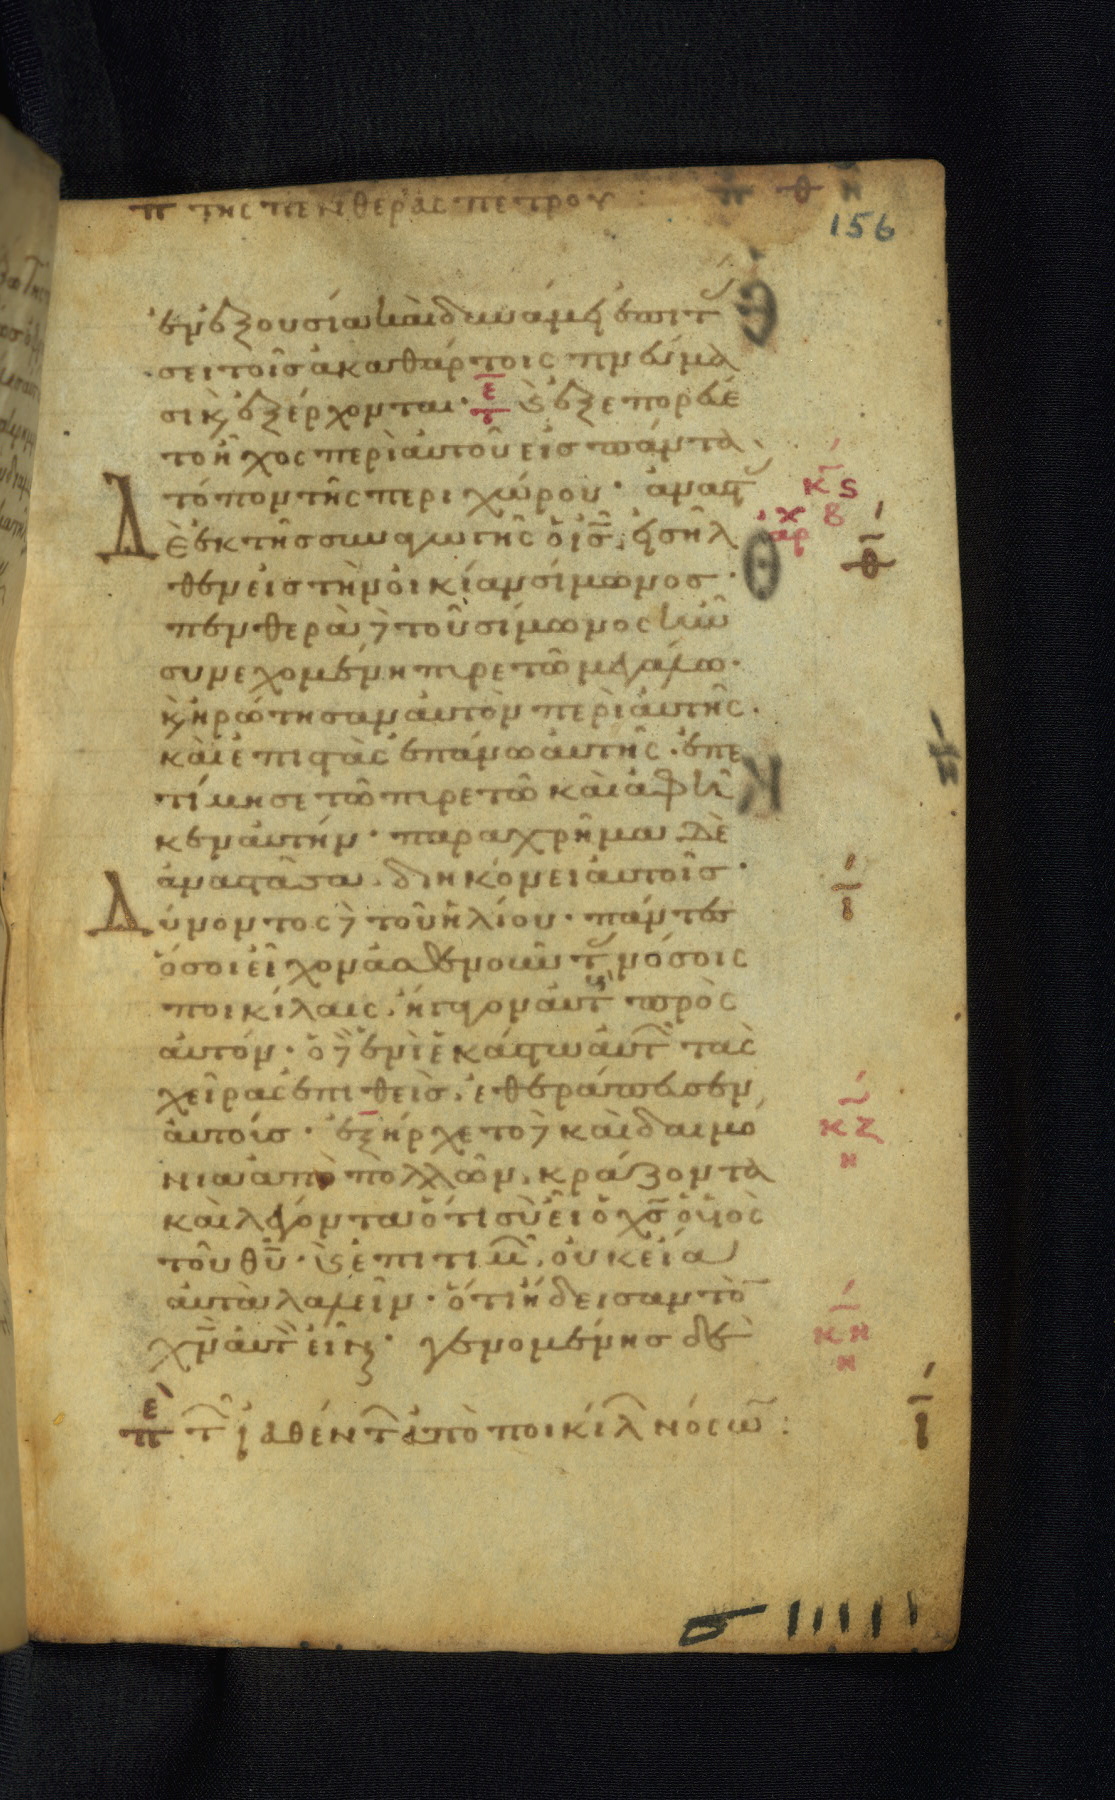 π της πενθερας πετρου :
156
ἐν ἐξουσία καὶ δυνάμει ἐπιτάσ
σει τοῖς ἀκαθάρτοις πνεύμα
σι κ(αὶ) ἐξέρχονται· ε τ κ(αὶ) ἐξεπορεύε
το ἦχος περὶ αὐτοῦ εἰς πάντα
τόπον τῆς περιχώρου· ἀναστ(ὰς)
Δὲ ἐκ τῆς συναγωγῆς ὁ ι̅ς̅, εἰσῆλ
θεν εἰς τὴν οἰκίαν σίμωνος·
πενθερὰ δ(ὲ) τοῦ σίμωνος ἦν
συνεχομένη πυρετῶ μεγάλω·
κ(αὶ) ἠρώτησαν αὐτὸν περὶ αὐτῆς·
καὶ ἐπιστὰς ἐπάνω αὐτῆς· ἐπε
τίμησε τῶ πυρετῶ καὶ ἀφῆ
κεν αὐτήν· παραχρῆμα δὲ
ἀναστᾶσα, διηκόνει αὐτοῖς·
Δύνοντος δ(ὲ) τοῦ ἡλίου· πάντες
ὅσοι εἶχον ἀσθενοῦντ(ας) νόσοις
ποικίλαις, ἤγαγον αὐτ(οὺς) πρὸς
αὐτόν· ὁ δ(ὲ) ἑνὶ ἑκάστω αὐτ(ῶν) τὰς
χεῖρας ἐπιθεὶς, ἐθεράπευσεν
αὐτοίς· ἐξήρχετο δ(ὲ) καὶ δαιμό
νια ἀπὸ πολλῶν, κράζοντα
καὶ λέγοντα ὅτι σὺ εἶ ὁ χ̅ς̅ ὁ υἱὸς
τοῦ θ̅υ̅· κ(αὶ) ἐπιτιμ(ῶν), οὐκ εἴα
αὐτὰ λαλεῖν· ὅτι ἤδεισαν τὸ(ν)
χ̅ν̅ αὐτ(ὸν) εἶν(αι)· γενομένης δὲ
ε π τ(ῶν) ἰαθέντ(ων) ἀπὸ ποικίλ(ων) νόσω(ν) :
κ̅ς̅
η
αρχ
θ
ι
κ̅ζ̅
η
κ̅η̅
η
ι